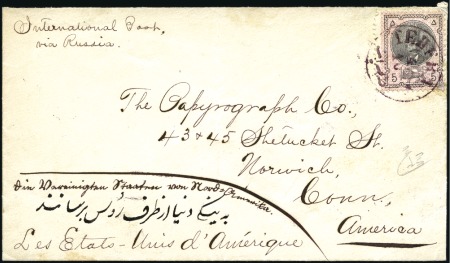 International Post,
via Russia.
5 5
The Papyrograph Co.,
43 & 45 Shetucket St.
Norwich,
Conn,
America
Die Vereinigten Staaten von Nord-Amerika.
به ینگی دنیا از طرف روس برسانند
Les Etats-Unis d'Amérique